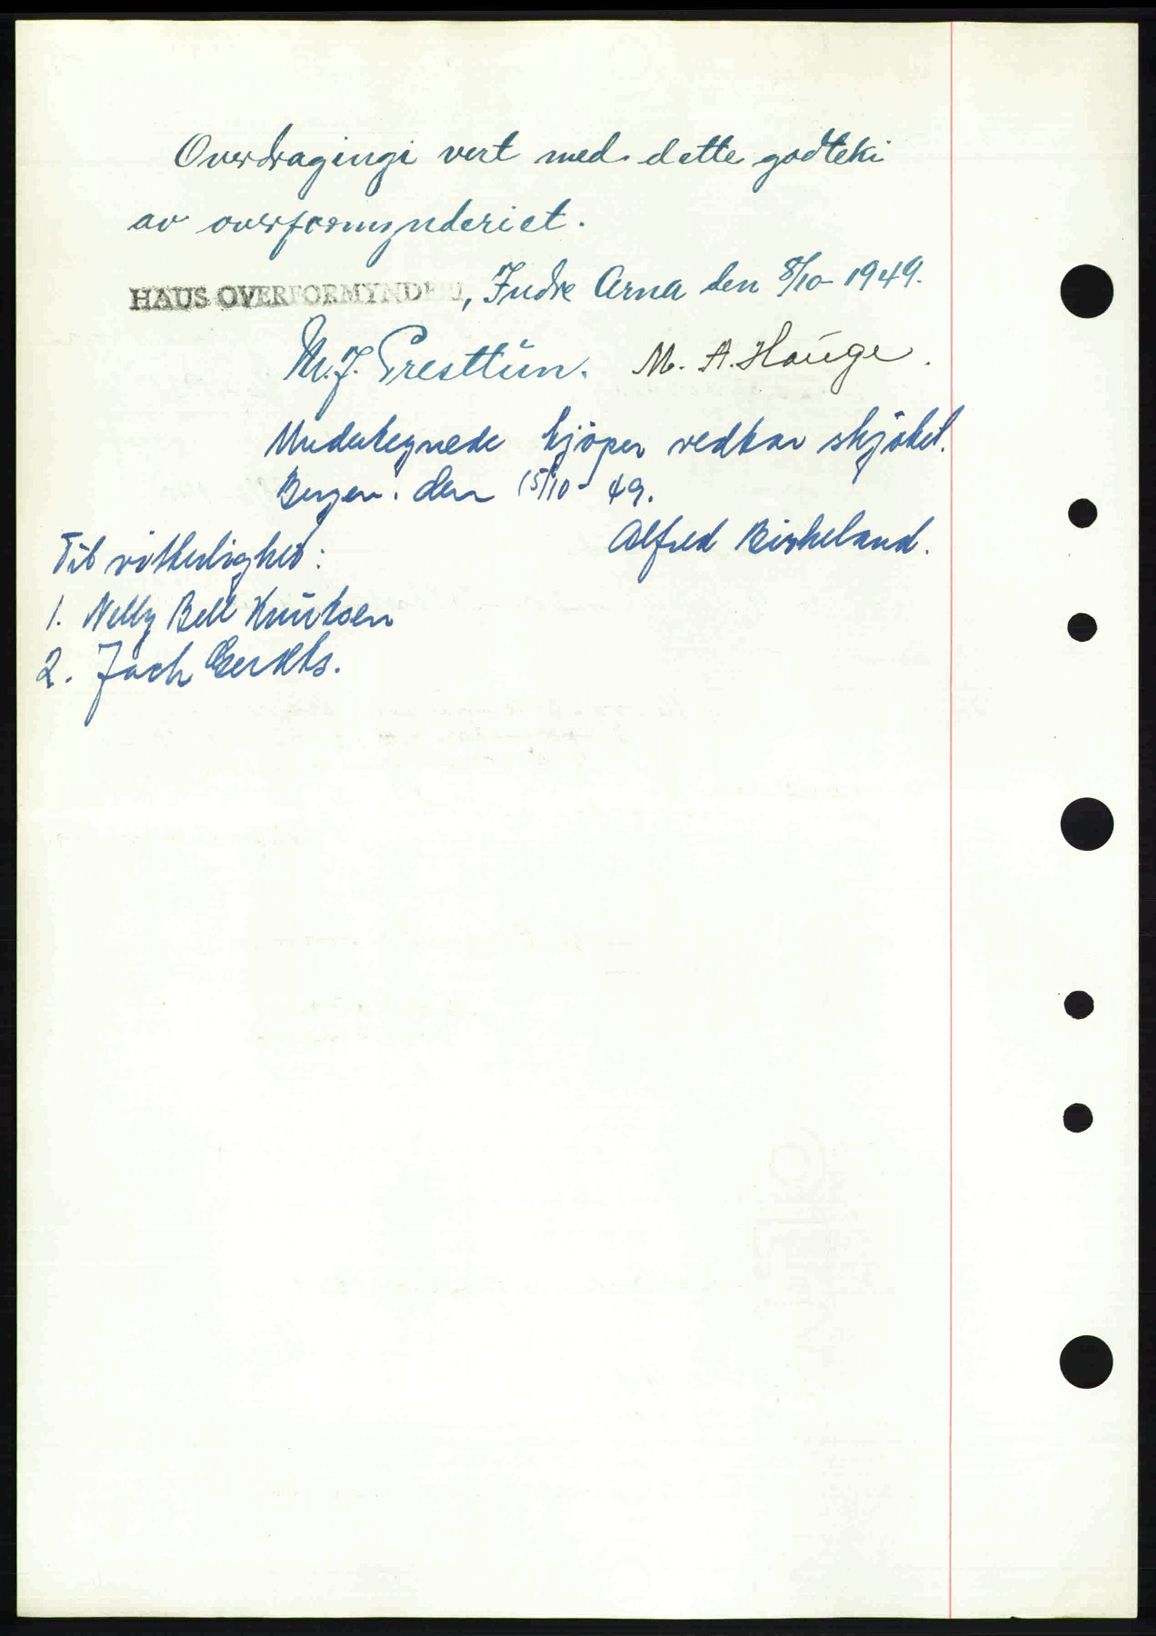 Overdragingi vert med dette godteki
av overformynderiet.
HAUS OVERFORMYNDERI, Indre Arna den 8/10-1949.
M. J. Presttun. M. A. Hauge.
Undertegnede kjöper vedtar skjötet.
Bergen. den 15/10-49.
Alfred Birkeland.
Til vitterlighet:
1. Nelly Bell Knutsen
2. Jach